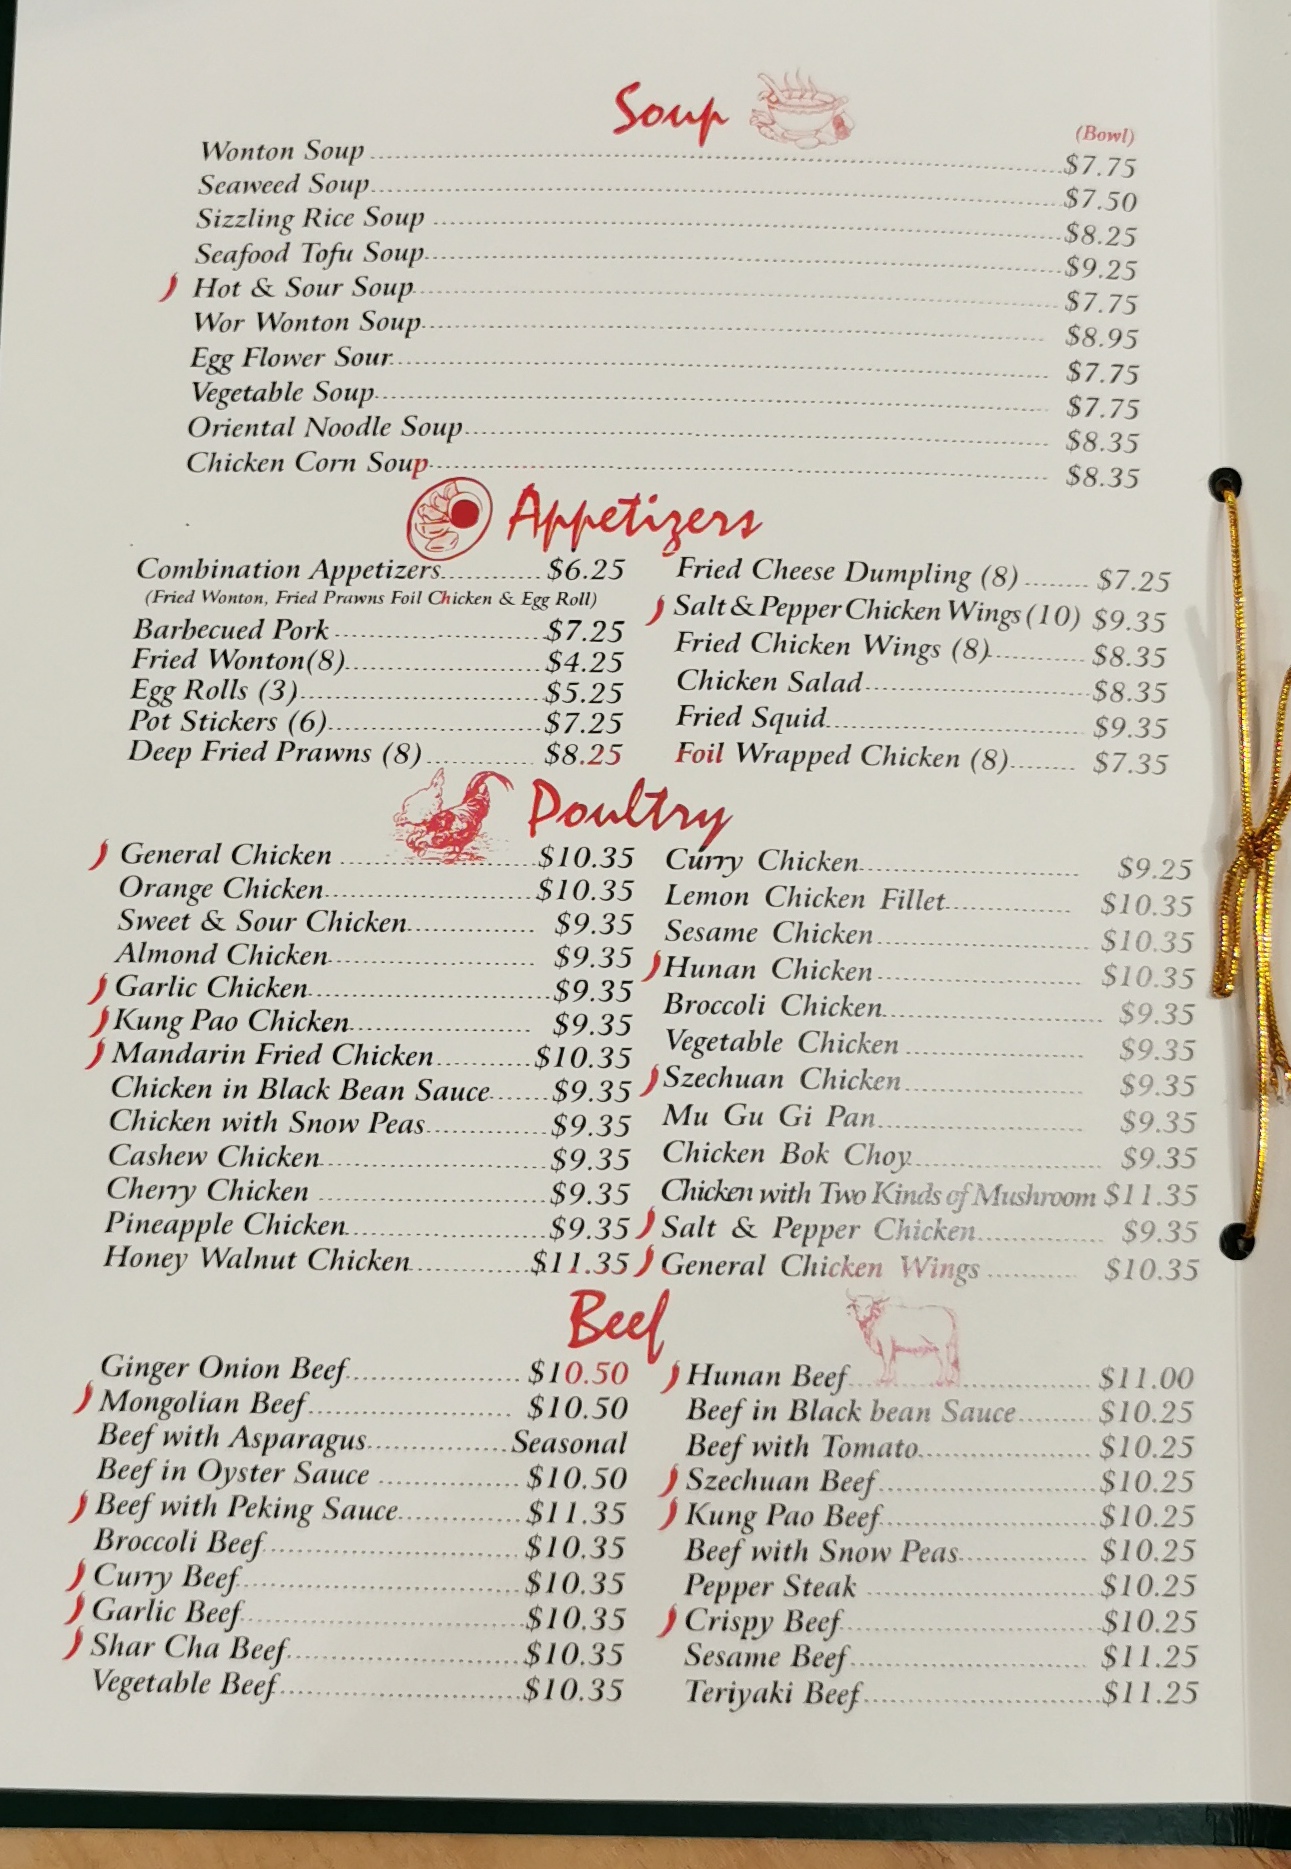 Soup
(Bowl)
Wonton Soup $7.75
Seaweed Soup $7.50
Sizzling Rice Soup $8.25
Seafood Tofu Soup $9.25
Hot & Sour Soup $7.75
Wor Wonton Soup $8.95
Egg Flower Sour $7.75
Vegetable Soup $7.75
Oriental Noodle Soup $8.35
Chicken Corn Soup $8.35
Appetizers
Combination Appetizers $6.25
(Fried Wonton, Fried Prawns Foil Chicken & Egg Roll)
Barbecued Pork $7.25
Fried Wonton(8) $4.25
Egg Rolls (3) $5.25
Pot Stickers (6) $7.25
Deep Fried Prawns (8) $8.25
Fried Cheese Dumpling (8) $7.25
Salt & Pepper Chicken Wings (10) $9.35
Fried Chicken Wings (8) $8.35
Chicken Salad $8.35
Fried Squid $9.35
Foil Wrapped Chicken (8) $7.35
Poultry
General Chicken $10.35
Orange Chicken $10.35
Sweet & Sour Chicken $9.35
Almond Chicken $9.35
Garlic Chicken $9.35
Kung Pao Chicken $9.35
Mandarin Fried Chicken $10.35
Chicken in Black Bean Sauce $9.35
Chicken with Snow Peas $9.35
Cashew Chicken $9.35
Cherry Chicken $9.35
Pineapple Chicken $9.35
Honey Walnut Chicken $11.35
Curry Chicken $9.25
Lemon Chicken Fillet $10.35
Sesame Chicken $10.35
Hunan Chicken $10.35
Broccoli Chicken $9.35
Vegetable Chicken $9.35
Szechuan Chicken $9.35
Mu Gu Gi Pan $9.35
Chicken Bok Choy $9.35
Chicken with Two Kinds of Mushroom $11.35
Salt & Pepper Chicken $9.35
General Chicken Wings $10.35
Beef
Ginger Onion Beef $10.50
Mongolian Beef $10.50
Beef with Asparagus Seasonal
Beef in Oyster Sauce $10.50
Beef with Peking Sauce $11.35
Broccoli Beef $10.35
Curry Beef $10.35
Garlic Beef $10.35
Shar Cha Beef $10.35
Vegetable Beef $10.35
Hunan Beef $11.00
Beef in Black bean Sauce $10.25
Beef with Tomato $10.25
Szechuan Beef $10.25
Kung Pao Beef $10.25
Beef with Snow Peas $10.25
Pepper Steak $10.25
Crispy Beef $10.25
Sesame Beef $11.25
Teriyaki Beef $11.25